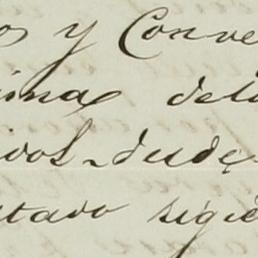 os y Conve
inas dela
ivos desde
ntado sigu